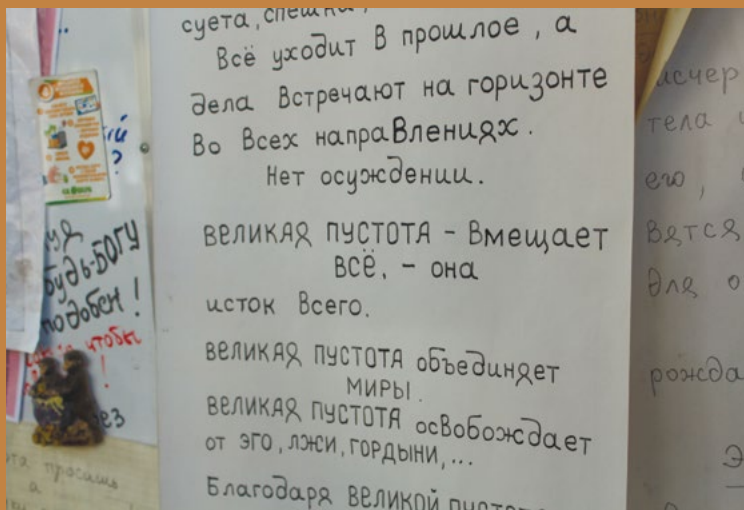 суета, спешка,
Всё уходит В прошлое, а
дела Встречают на горизонте
Во Всех напраВлениях.
Нет осуждении.
ВЕЛИКАЯ ПУСТОТА - Вмещает
ВСЁ, - она
исток Всего.
ВЕЛИКАЯ ПУСТОТА объединяет
МИРЫ.
ВЕЛИКАЯ ПУСТОТА осВобождает
от ЭГО, ЛЖИ, ГОРДЫНИ, ...
Благодаря ВЕЛИКОЙ
будь-БОГУ
подобен!
чтобы
просишь
а
исчер
тела
его,
Вятся
для о
рожда
Э